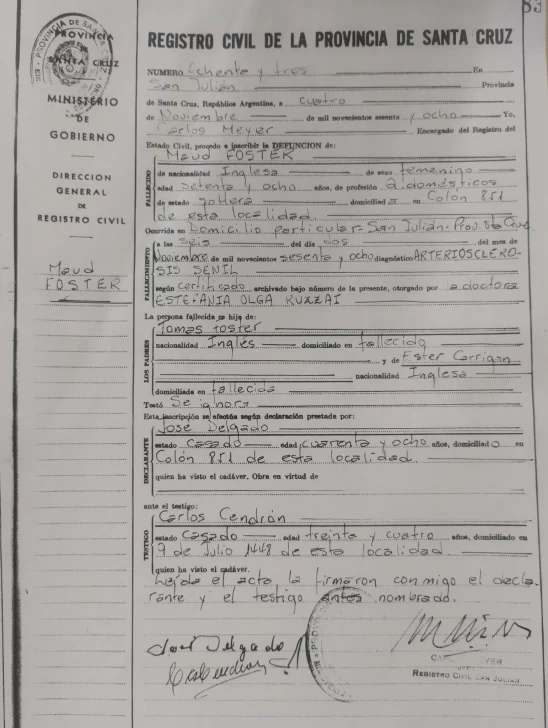 83
PROVINCIA DE SANTA CRUZ
Provincia
SANTA CRUZ
MINISTERIO
DE
GOBIERNO
DIRECCION
GENERAL
DE
REGISTRO CIVIL
Maud
FOSTER
REGISTRO CIVIL DE LA PROVINCIA DE SANTA CRUZ
NUMERO Ochenta y tres En
San Julián Provincia
de Santa Cruz, República Argentina, a cuatro
de Noviembre de mil novecientos sesenta y ocho Yo,
Carlos Meyer, Encargado del Registro del
Estado Civil, procedo a inscribir la DEFUNCION de:
Maud FOSTER
FALLECIDO
de nacionalidad Inglesa de sexo femenino
edad setenta y ocho años, de profesión q.domésticos
de estado soltera domiciliad a en Colón 851
de esta localidad.
Ocurrida en Domicilio particular-San Julián-Prov.Sta Cruz
FALLECIMIENTO
a las seis del día dos del mes de
Noviembre de mil novecientos sesenta y ocho diagnóstico ARTERIOSCLERO-
SIS SENIL
según certificado archivado bajo número de la presente, otorgado por a doctora
ESTEFANIA OLGA KUZZAI
La persona fallecida es hija de:
LOS PADRES
Tomas Foster
nacionalidad Inglés domiciliado en fallecido
y de Ester Corrigan
nacionalidad Inglesa
domiciliada en fallecida
Testó Se ignora
Esta inscripción se efectúa según declaración prestada por:
DECLARANTE
José Delgado
estado Casado edad cuarenta y ocho años, domiciliad o en
Colón 851 de esta localidad.
quien ha visto el cadáver. Obra en virtud de
ante el testigo:
TESTIGO
Carlos Cendrón
estado Casado edad treinta y cuatro años, domiciliado en
9 de Julio 1448 de esta localidad
quien ha visto el cadáver.
Leída el acta, la firmaron conmigo el decla
rante y el testigo antes nombrado.
José Delgado
REGISTRO CIVIL SAN JULIAN